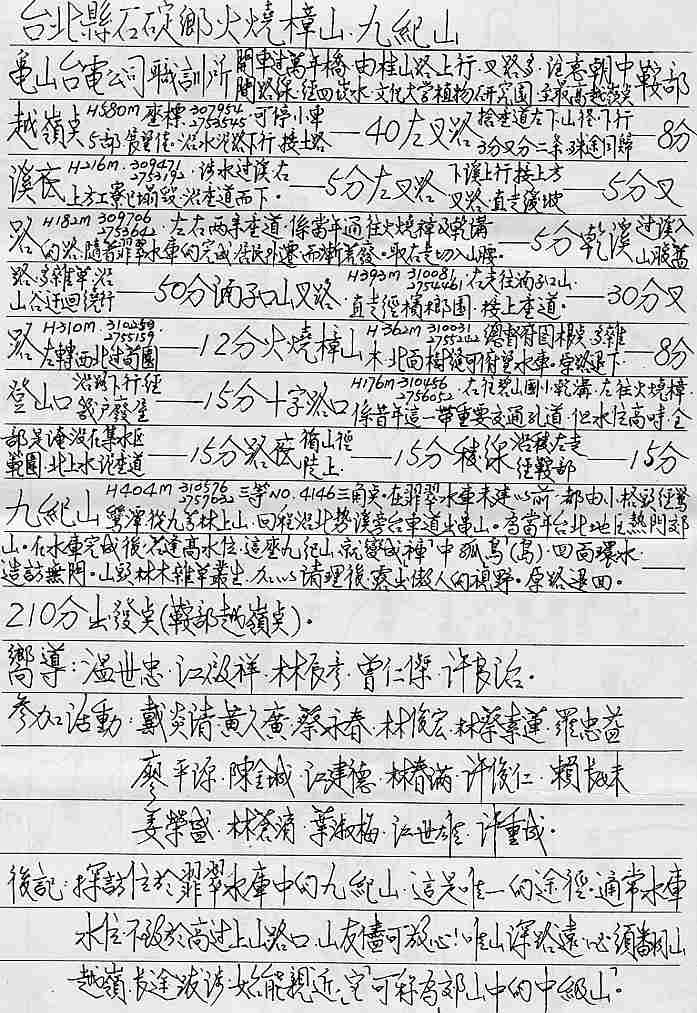 台北縣石碇鄉火燒樟山．九紀山
龜山台電公司職訓所 開車達萬年橋．由桂山路上行．叉路多．注意朝中鞍部
開路線．經四 水．文化大學植物 研究園 至最高越嶺點
越嶺点 H580m．座標 307954 2753545 可停小車 5部．展望佳．沿水泥路下行．接土路—40分左叉路 捨車道左下山徑．下行 3分又分二条．殊途同歸—8分
溪底 H216m．309471 2753192．涉水過溪右 上方工寮已塌毀．沿車道而下．—5分左叉路 下溪上行接上方 叉路．直走緩坡—5分叉
路 H182m 309706 2753642．左右兩条車道．係當年通往火燒樟及乾溝 的路．隨著翡翠水庫的完成．居民外遷．而漸荒廢．取右走切入山腰．—5分乾溪 過溪入 山腹舊
路．多雜草．沿 山谷迂迴繞行—50分湳子口山叉路 H393m 310081 2754461．右走往湳子口山．直走經檳榔園．接上車道．—30分叉
路 H310m．310259 2755159 左轉西北過 園—12分火燒樟山 H362m 310031 2755242 總督府圖根点 多雜 木．北面樹縫可俯望水庫．原路退下．—8分
登山口 沿路下行．經 戶廢屋—15分十字路口 H176m 310456 2756052．右往碧山國小乾溝．左往火燒樟．係昔年這一帶重要交通孔道．但水位高時．全
部是淹沒在集水區 範圍．北上水泥車道—15分路底 循山徑 陡上．—15分稜線 沿稜左走 經鞍部—15分
九紀山 H404m 310576 2757632 三等NO.4146三角点．在翡翠水庫未建以前．都由小格頭經鷺
鷥潭從九芎林上山．回程沿北勢溪旁台車道出龜山．為當年台北地区熱門郊
山．在水庫完成後．若達高水位．這座九紀山．就變成「湖」中孤鳥(島)．四面環水．
造訪無門．山頂林木雜草叢生．加以清理後．露出傲人的視野．原路退回．—
210分出發点(鞍部越嶺点)．
嚮導：溫世忠．江啟祥．林辰彥．曾仁傑．許良治．
參加活動：戴炎清．黃久廣．蔡永春．林俊宏．林蔡素蓮．羅忠益
廖平源．陳金城．江建德．林春滿．許俊仁．賴
姜榮盛．林蒼濱．葉淑梅．江世雄．許重成．
後記：探訪位於翡翠水庫中的九紀山．這是唯一的途徑．通常水庫
水位不致於高過上山路口．山友儘可放心！唯山深路遠．必須翻山
越嶺．長途跋涉始能親近．它「可稱為郊山中的中級山」．